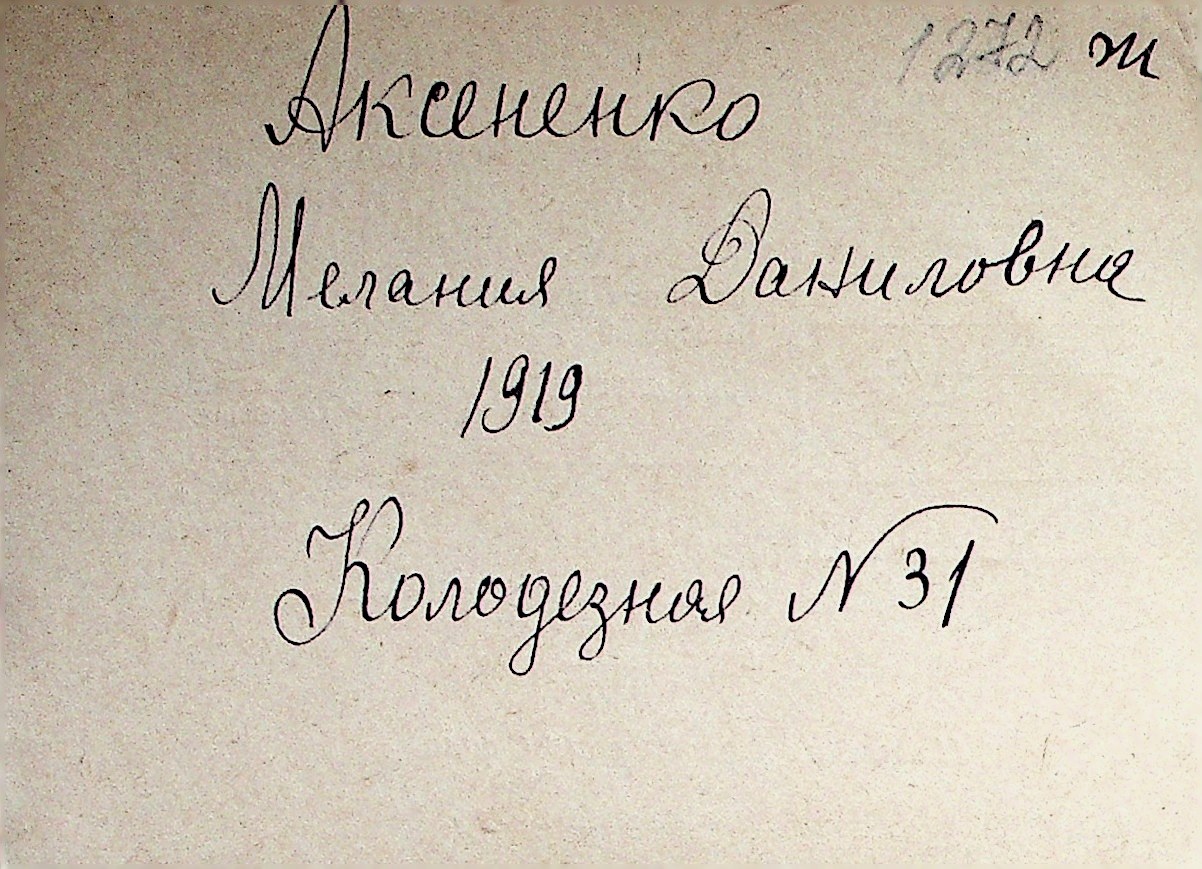 1272 ж
Аксененко
Мелания Даниловна
1919
Колодезная № 31